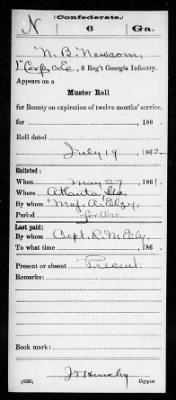 (Confederate.)
N 6 Ga.
N. B. Newsom,
1" Corp, Co. E, 6 Reg't Georgia Infantry.
Appears on a
Muster Roll
for Bounty on expiration of twelve months' service.
for , 186 .
Roll dated
July 19, 1862.
Enlisted:
When May 27, 1861.
Where Atlanta Ga
By whom Maj. A.
Period for War.
Last paid:
By whom Capt. R.
To what time , 186 .
Present or absent Present
Remarks:
Book mark:
(656) Copyist.